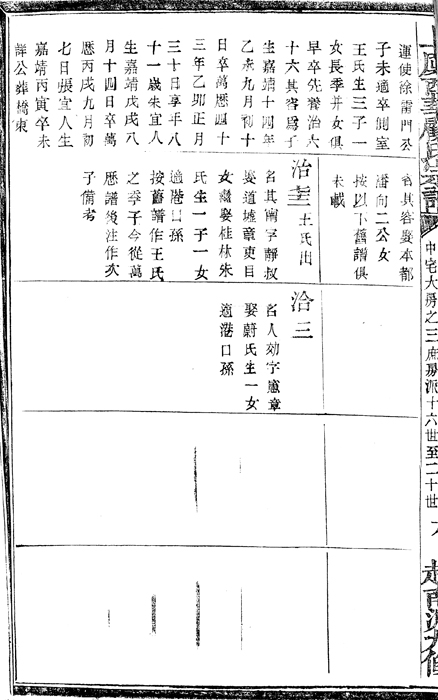 中宅大房之三庶房派十六世至二十世
運使徐雷門公
子未適卒副室
王氏生三子一
女長季并女俱
早卒先養治大
十六其容為子
生嘉靖十四年
乙未九月初十
日卒萬歷四十
三年乙卯正月
三十日享年八
十一歲朱宜人
生嘉靖戊戌八
月十四日卒萬
歷丙戌九月初
七日張宜人生
嘉靖丙寅卒未
詳公葬橋東
名其容娶本都
潘向二公女
按以下舊譜俱
未載
治 王氏出
名其南字靜叔
娶道墟章吏目
女繼娶桂林朱
氏生一子一女
適港口孫
按舊譜作王氏
之季子今從萬
歷譜後注作次
子備考
洽三
名人効字憲章
娶蔚氏生一女
適港口孫